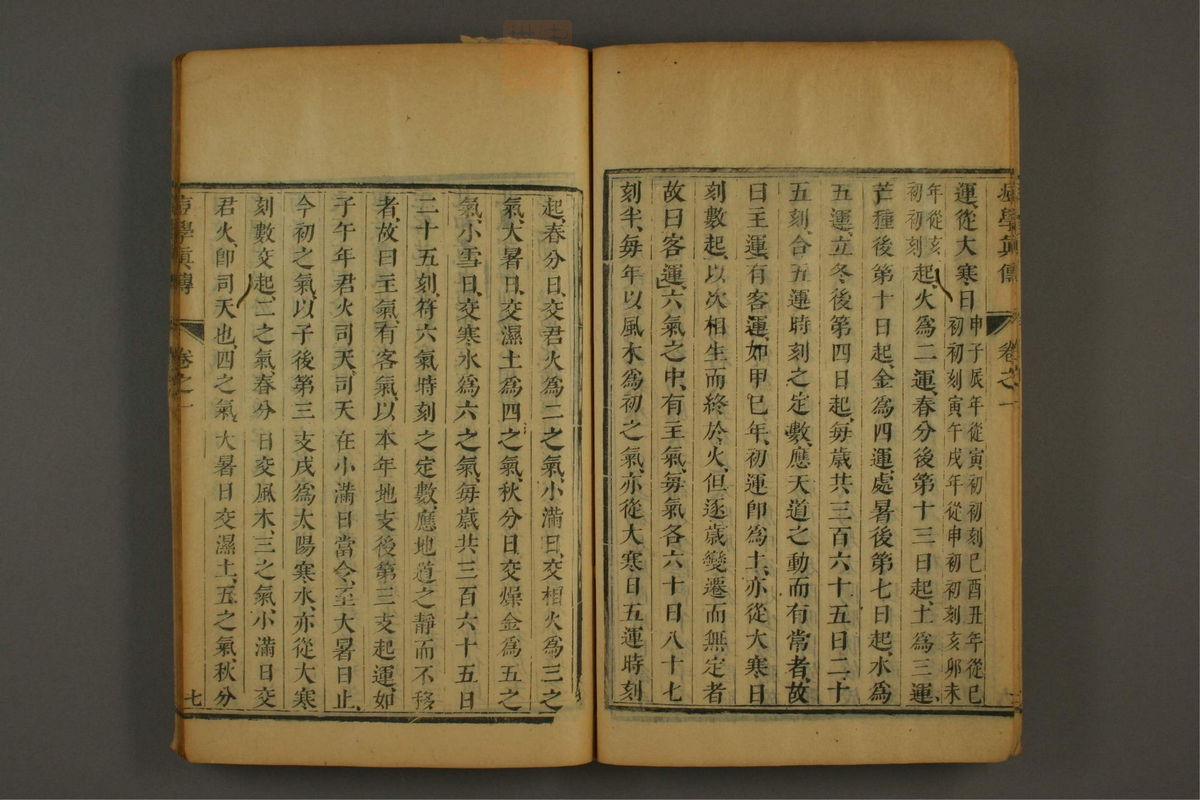 痘學眞傳 卷之一
運、從大寒日申子辰年從寅初初刻巳酉丑年從巳初初刻寅午戌年從申初初刻亥卯未
年從亥初初刻起、火爲二運春分後第十三日起、土爲三運、
芒種後第十日起、金爲四運處暑後第七日起、水爲
五運、立冬後第四日起、每歲共三百六十五日二十
五刻、合五運時刻之定數、應天道之動而有常者、故
曰主運、有客運、如甲巳年、初運卽爲土、亦從大寒日
刻數起、以次相生而終於火、但逐歲變遷而無定者
故曰客運、六氣之中、有主氣、每氣各六十日八十七
刻半、每年以風木爲初之氣、亦從大寒日五運時刻
起、春分日、交君火爲二之氣、小滿日、交相火爲三之
氣、大暑日、交濕土爲四之氣、秋分日交燥金爲五之
氣、小雪日、交寒水爲六之氣、每歲共三百六十五日
二十五刻、符六氣時刻之定數、應地道之靜而不移
者、故曰主氣、有客氣、以本年地支後第三支起運、如
子午年君火司天、司天在小滿日當令、至大暑日止、
今初之氣、以子後第三支戌爲太陽寒水、亦從大寒
刻數交起、二之氣、春分日交風木、三之氣、小滿日交
君火、卽司天也、四之氣、大暑日交濕土、五之氣、秋分
痘學眞傳 卷之一 七